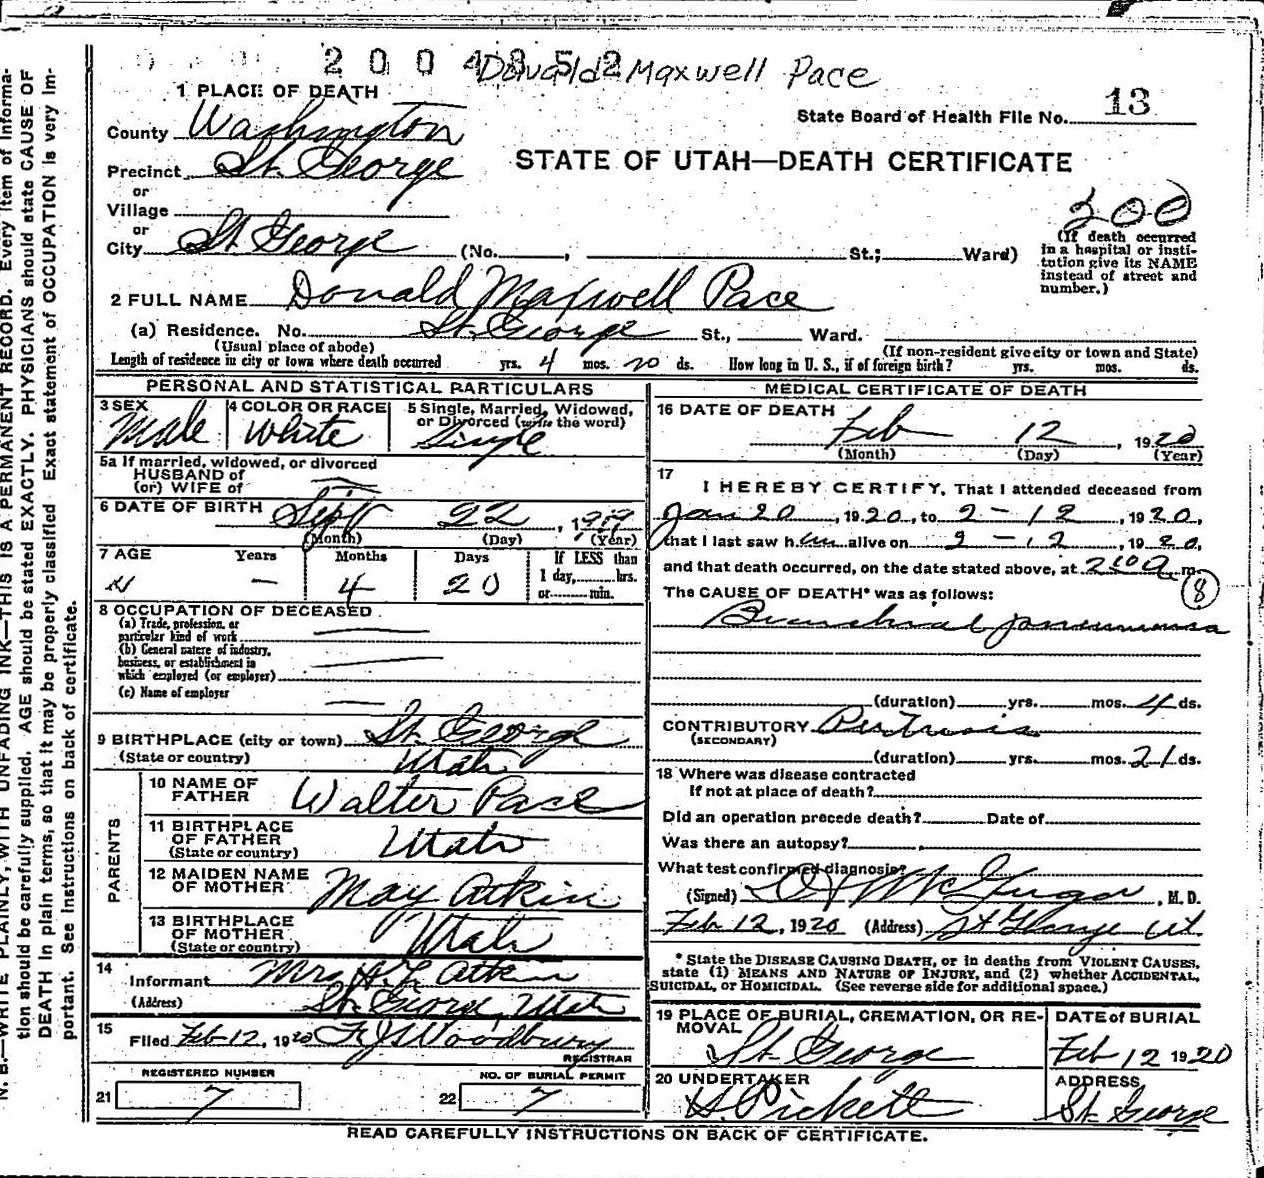 2004852 Donald Maxwell Pace
1 PLACE OF DEATH
County Washington
State Board of Health File No. 13
Precinct St. George
STATE OF UTAH—DEATH CERTIFICATE
or
Village
or
200
City St George (No. , St.; Ward)
(If death occurred in a hospital or insti-tution give its NAME instead of street and number.)
2 FULL NAME Donald Maxwell Pace
(a) Residence. No. St. George St., Ward.
(Usual place of abode) (If non-resident give city or town and State)
Length of residence in city or town where death occurred yrs. 4 mos. 20 ds. How long in U. S., if of foreign birth? yrs. mos. ds.
PERSONAL AND STATISTICAL PARTICULARS
3 SEX Male
4 COLOR OR RACE White
5 Single, Married, Widowed, or Divorced (write the word) Single
5a If married, widowed, or divorced
HUSBAND of
(or) WIFE of
6 DATE OF BIRTH Sept 22, 1919
(Month) (Day) (Year)
7 AGE Years Months Days If LESS than
— 4 20 1 day, hrs.
or min.
8 OCCUPATION OF DECEASED
(a) Trade, profession, or
particular kind of work
(b) General nature of industry,
business, or establishment in
which employed (or employer)
(c) Name of employer
9 BIRTHPLACE (city or town) St. George
(State or country) Utah
PARENTS
10 NAME OF FATHER Walter Pace
11 BIRTHPLACE OF FATHER
(State or country) Utah
12 MAIDEN NAME OF MOTHER May Atkin
13 BIRTHPLACE OF MOTHER
(State or country) Utah
14 Informant Mrs H. T. Atkin
(Address) St. George, Utah
15 Filed Feb 12, 1920 F J Woodbury
REGISTRAR
REGISTERED NUMBER NO. OF BURIAL PERMIT
21 7 22 7
MEDICAL CERTIFICATE OF DEATH
16 DATE OF DEATH
Feb 12, 1920
(Month) (Day) (Year)
17
I HEREBY CERTIFY, That I attended deceased from
Jan 20, 1920, to 2-12, 1920,
that I last saw him alive on 2-12, 1920,
and that death occurred, on the date stated above, at 2 00 a m.
The CAUSE OF DEATH* was as follows: 8
Bronchial pneumonia
(duration) yrs. mos. 4 ds.
CONTRIBUTORY Pertussis
(SECONDARY)
(duration) yrs. mos. 21 ds.
18 Where was disease contracted
If not at place of death?
Did an operation precede death? Date of
Was there an autopsy?
What test confirmed diagnosis?
(Signed) McGregor, M. D.
Feb 12, 1920 (Address) St George Ut
* State the DISEASE CAUSING DEATH, or in deaths from VIOLENT CAUSES,
state (1) MEANS AND NATURE OF INJURY, and (2) whether ACCIDENTAL,
SUICIDAL, or HOMICIDAL. (See reverse side for additional space.)
19 PLACE OF BURIAL, CREMATION, OR RE-MOVAL
St. George
DATE of BURIAL
Feb 12 1920
20 UNDERTAKER
Pickett
ADDRESS
St. George
READ CAREFULLY INSTRUCTIONS ON BACK OF CERTIFICATE.
N. B.—WRITE PLAINLY, WITH UNFADING INK—THIS IS A PERMANENT RECORD. Every item of informa-
tion should be carefully supplied. AGE should be stated EXACTLY. PHYSICIANS should state CAUSE OF
DEATH in plain terms, so that it may be properly classified. Exact statement of OCCUPATION is very im-
portant. See instructions on back of certificate.